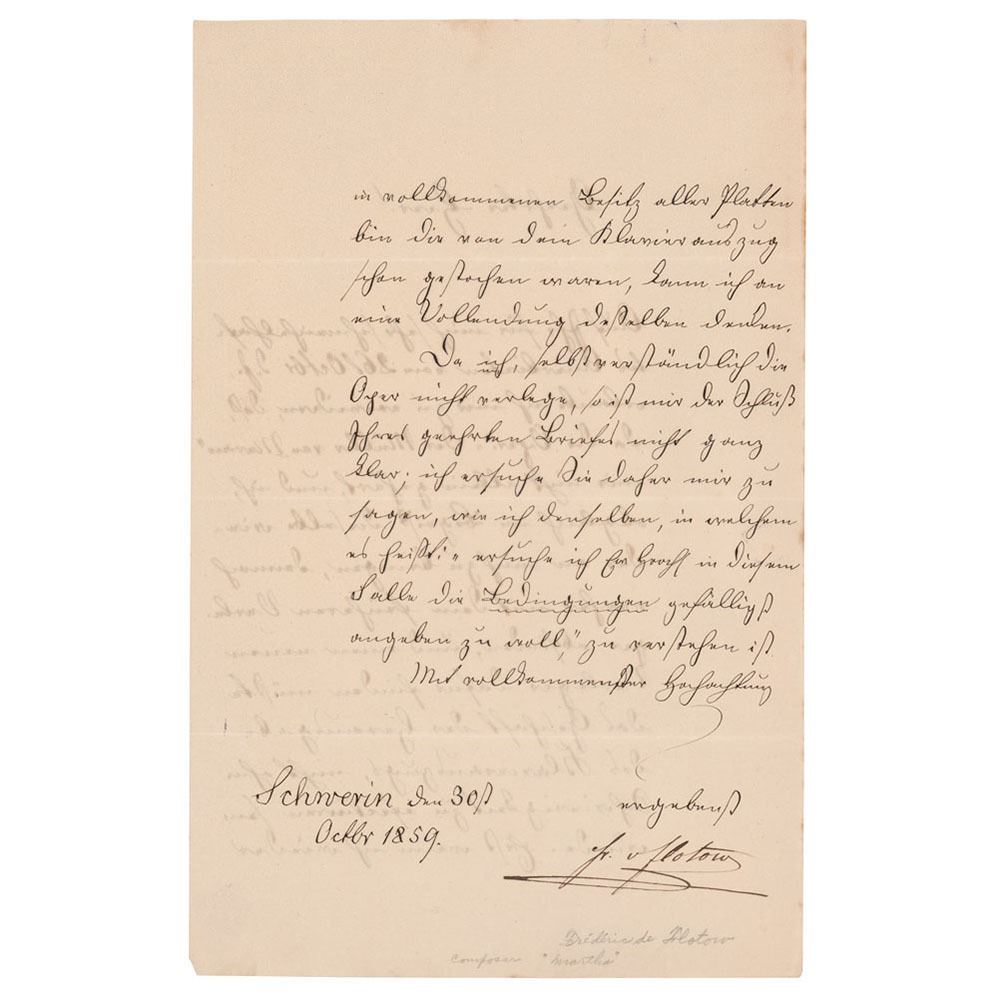 in vollkommenen Besitz aller Platten
bin die von dem Klavierauszug
schon gestochen waren, kann ich an
eine Vollendung desselben denken.
Da ich, selbstverständlich die
Oper nicht verlege, so ist mir der Schluß
Ihres geehrten Briefes nicht ganz
klar; ich ersuche Sie daher mir zu
sagen, wie ich denselben, in welchem
es heißt: "ersuche ich Ew Hoch in diesem
Falle die Bedingungen gefälligst
angeben zu woll," zu verstehen ist.
Mit vollkommenster Hochachtung
ergebenst
Schwerin den 30st
Octbr 1859.
Fr. v Flotow
Frédéric de Flotow
Composer "Martha"